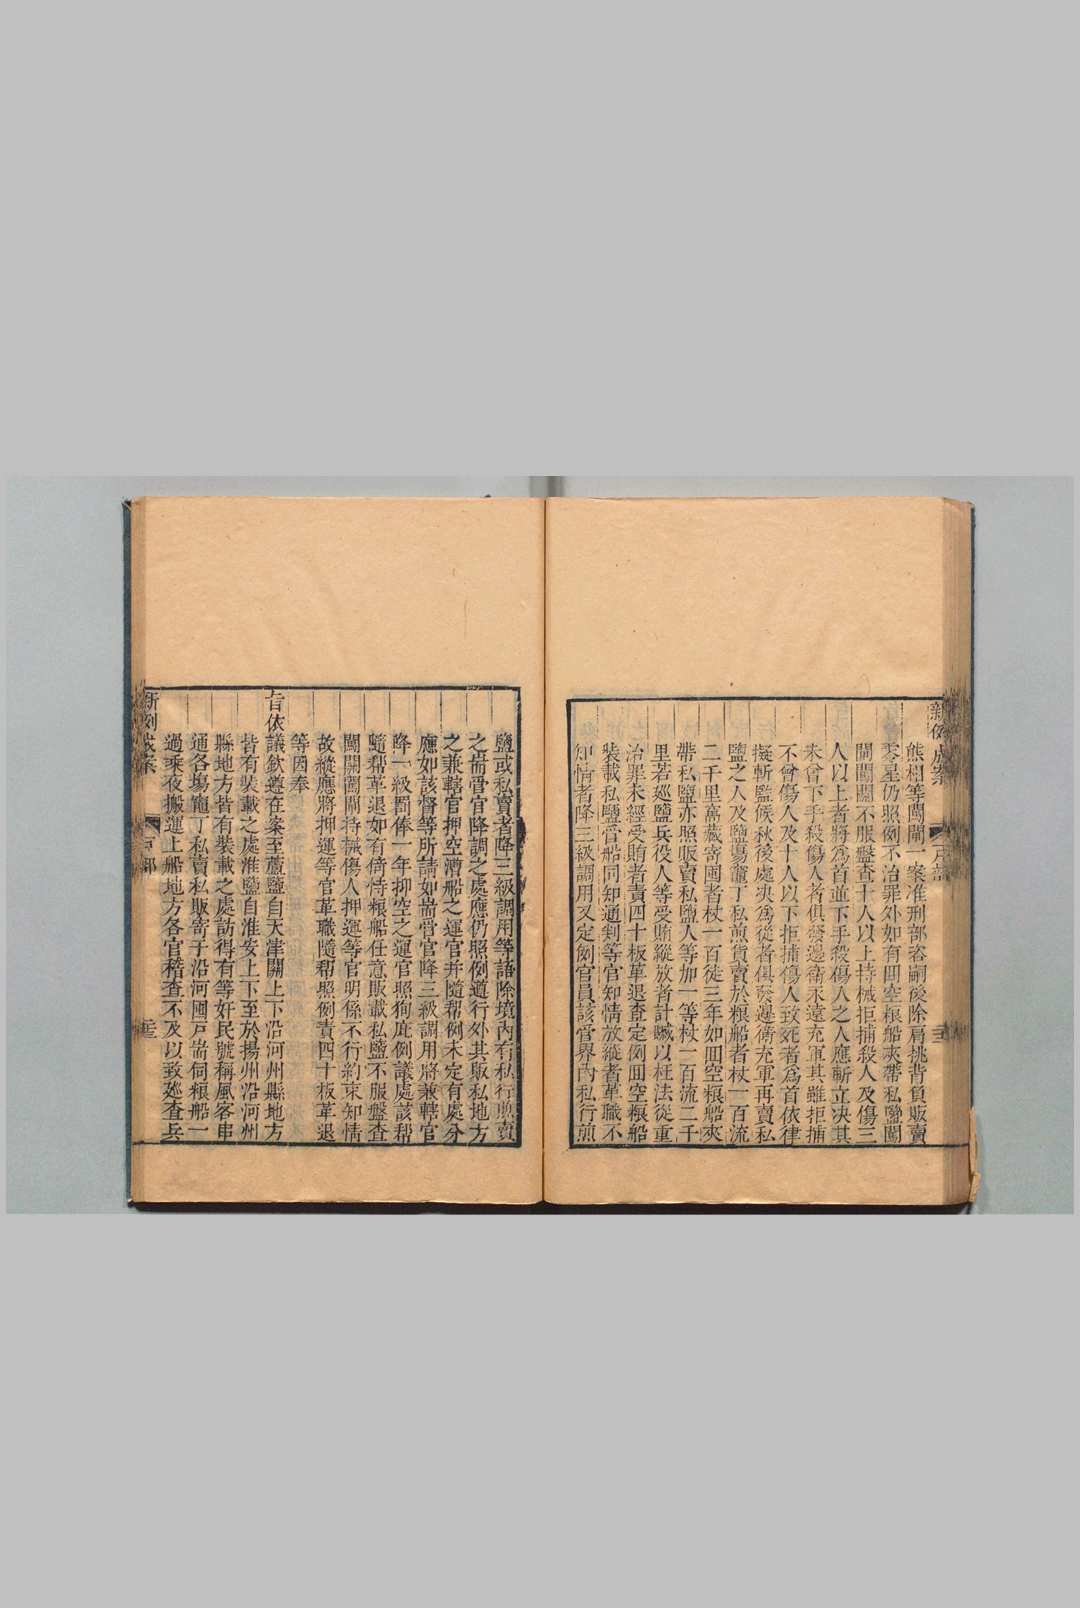 新例成案
戶部
熊相等闖閘一案准刑部咨嗣後除肩挑背負販賣
零星仍照例不治罪外如有回空粮船夾帶私鹽闖
閘闖關不服盤查十人以上持械拒捕殺人及傷三
人以上者將為首並下手殺傷人之人應斬立决其
未曾下手殺傷人者俱發邊衛永遠充軍其雖拒捕
不曾傷人及十人以下拒捕傷人致死者為首依律
擬斬監候秋後處决為從者俱發邊衛充軍再賣私
鹽之人及鹽塲竈丁私煎貨賣於粮船者杖一百流
二千里窩藏寄囤者杖一百徒三年如回空粮船夾
帶私鹽亦照販賣私鹽人等加一等杖一百流二千
里若廵鹽兵役人等受賄縱放者計贓以枉法從重
治罪未經受賄者責四十板革退查定例回空粮船
裝載私鹽管船同知通判等官知情放縱者革職不
知情者降三級調用又定例官員該管界內私行煎
鹽或私賣者降三級調用等語除境內有私行煎賣
之耑管官降調之處應仍照例遵行外其販私地方
之兼轄官押空漕船之運官并隨帮例未定有處分
應如該督等所請如耑管官降三級調用將兼轄官
降一級罰俸一年押空之運官照徇庇例議處該帮
隨帮革退如有倚恃粮船任意販載私鹽不服盤查
闖關闖閘持械傷人押運等官明係不行約束知情
故縱應將押運等官革職隨帮照例責四十板革退
等因奉
旨依議欽遵在案至蘆鹽自天津關上下沿河州縣地方
皆有裝載之處淮鹽自淮安上下至於揚州沿河州
縣地方皆有裝載之處訪得有等奸民號稱風客串
通各塲竈丁私賣私販寄于沿河囤戶耑伺粮船一
過乘夜搬運上船地方各官稽查不及以致廵查兵
新例成案
戶部